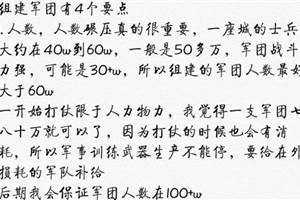 组建军团有4个要点
.人数，人数碾压真的很重要，一座城的士兵
大约在40w到60w，一般是50多万，军团战斗
力强，可能是30+w，所以组建的军团人数最好
大于60w
一开始打仗限于人力物力，我觉得一支军团七
八十万就可以了，因为打仗的时候也会有消
耗，所以军事训练武器生产不能停，要给在外
损耗的军队补给
后期我会保证军团人数在100+w